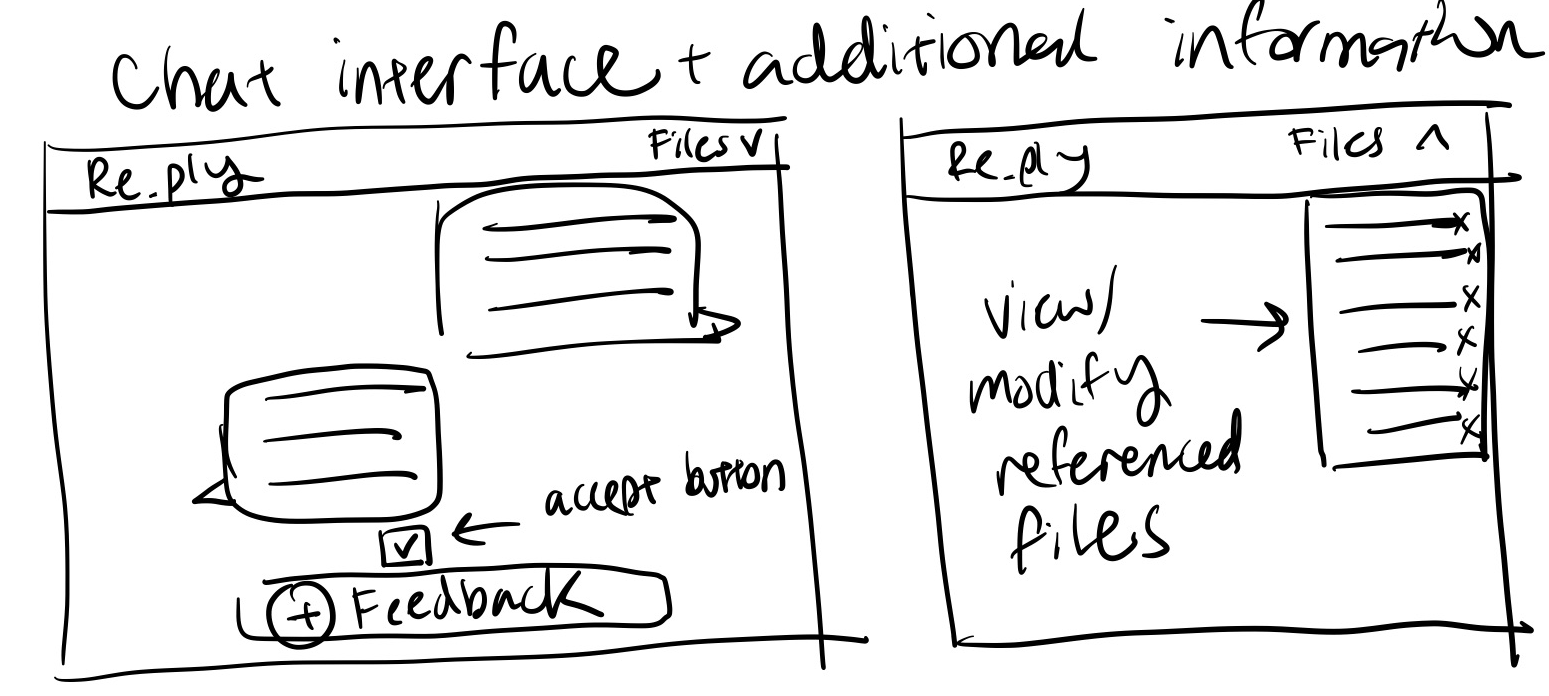 Chat interface + additional information
Re_ply
Files v
accept button
+ Feedback
Re_ply
Files ^
view/
modify
referenced
files
x
x
x
x
x
x